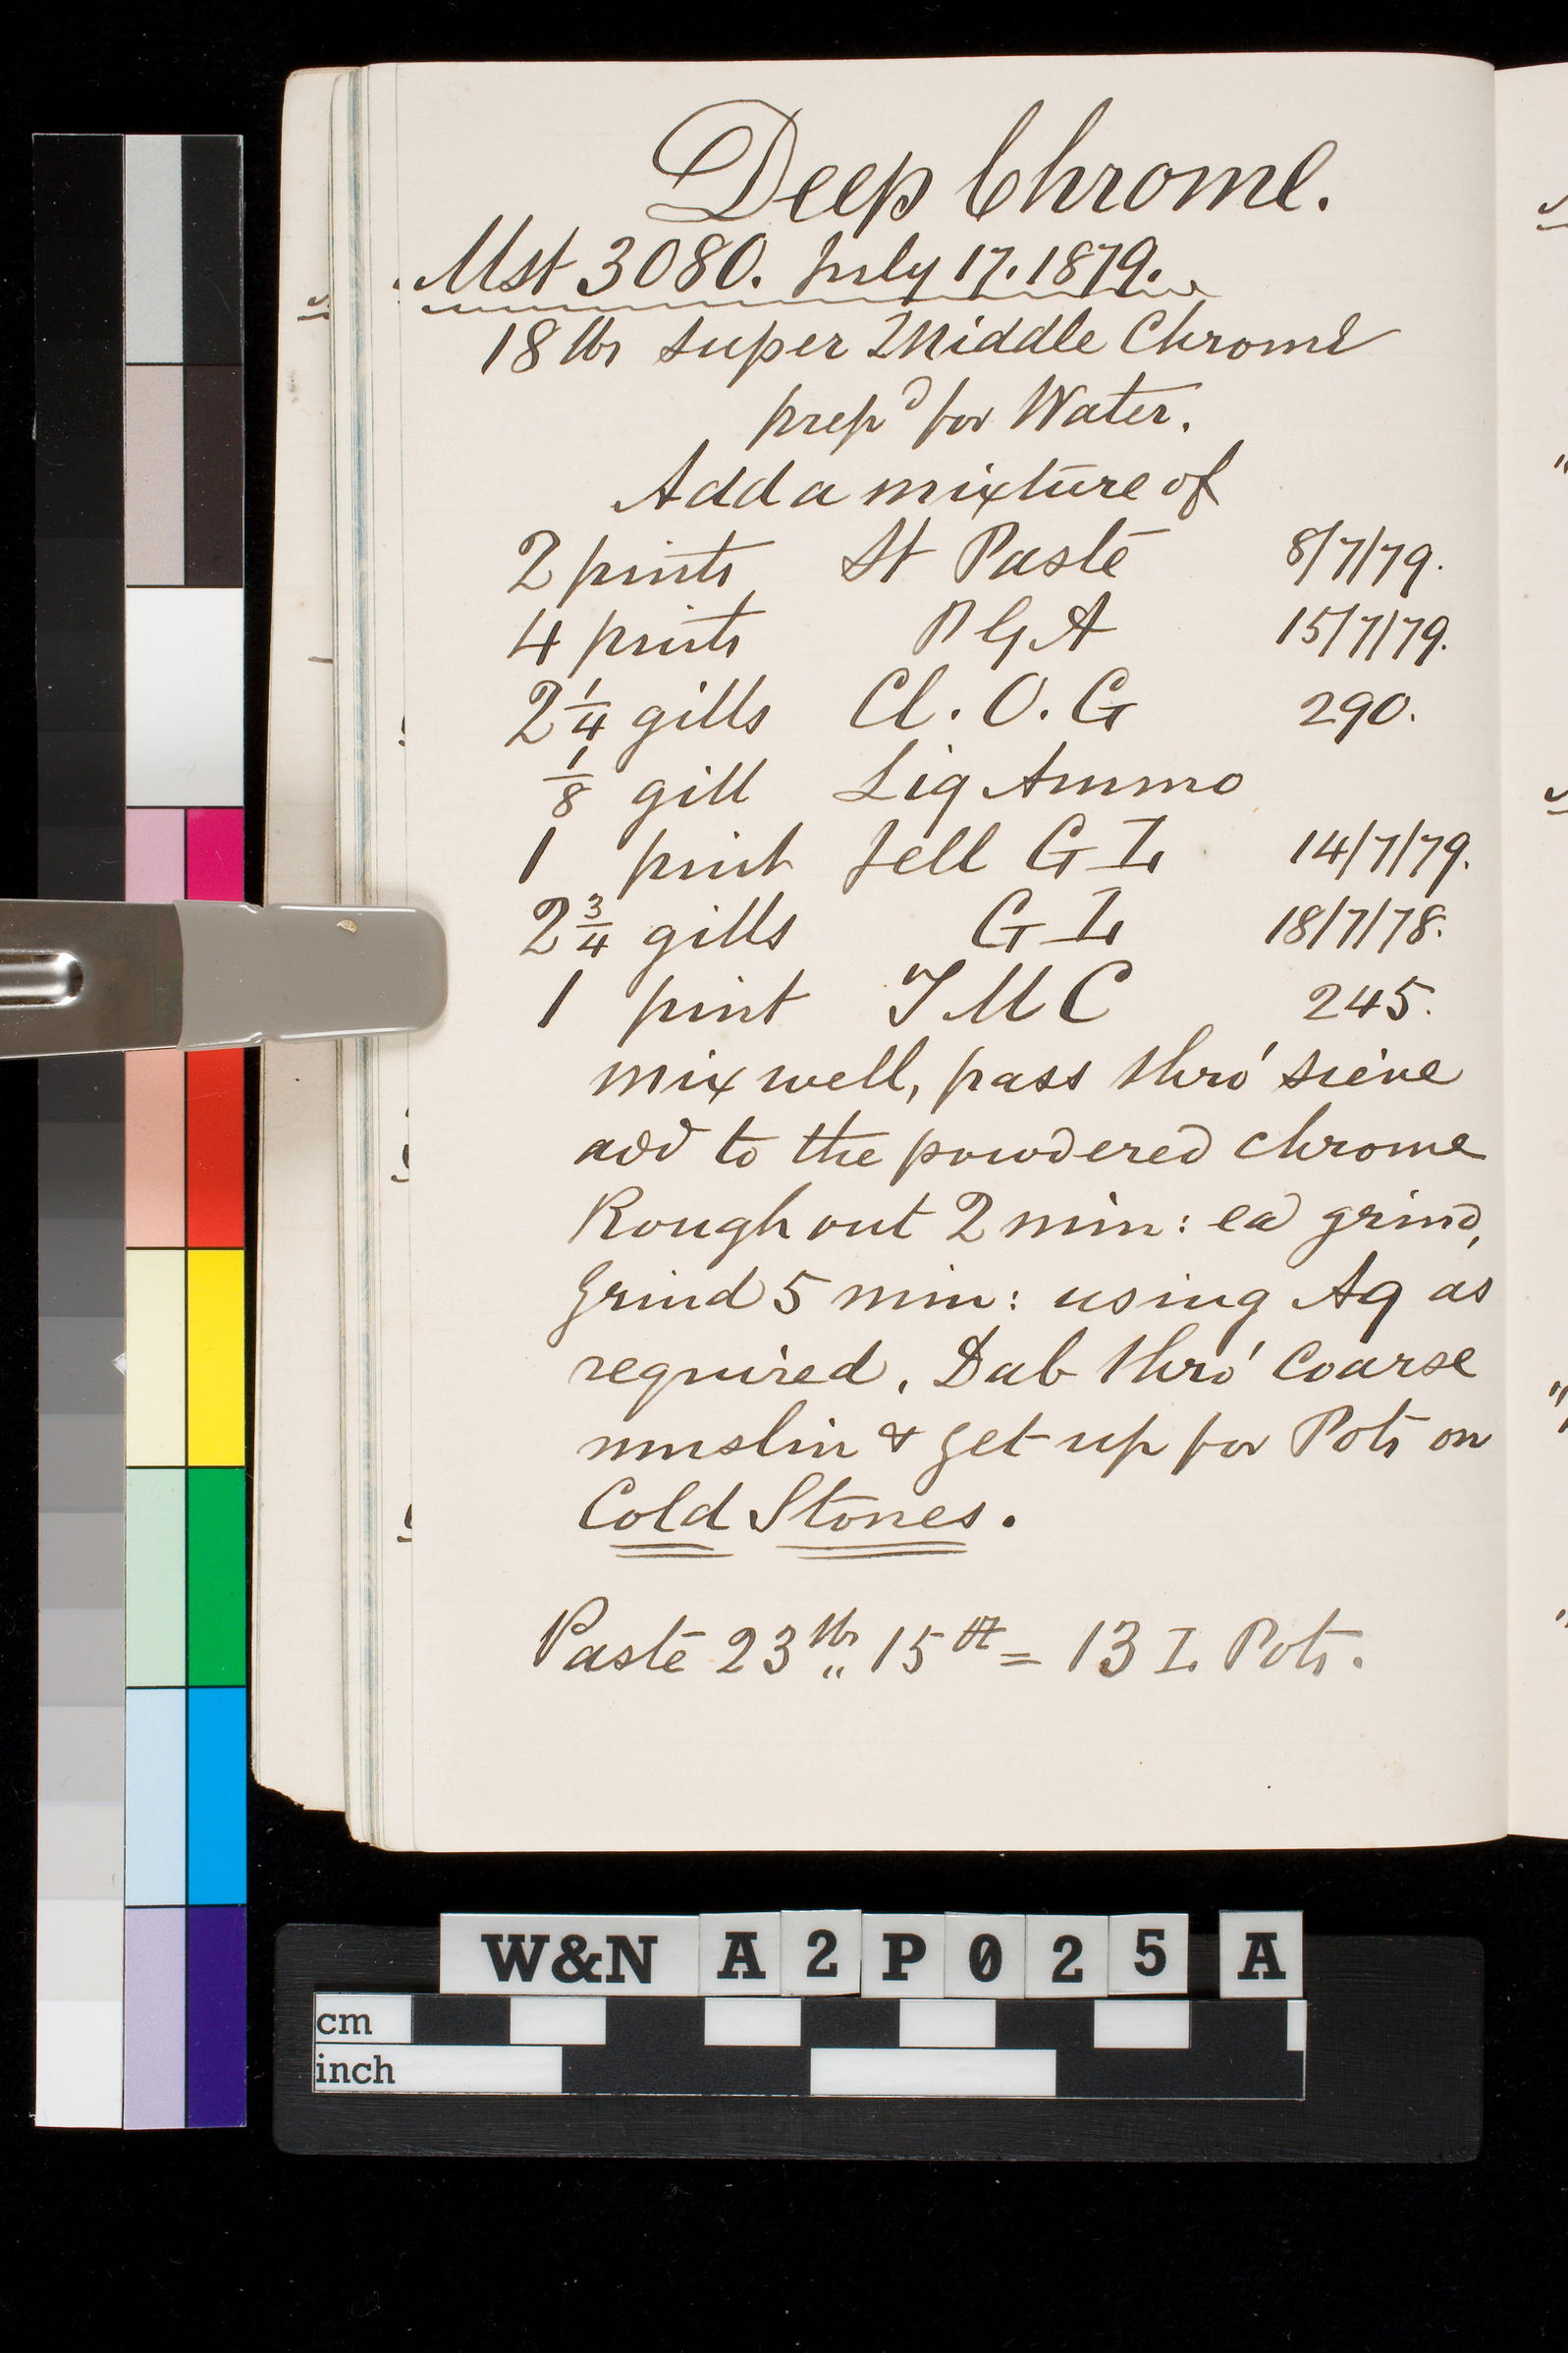 Deep Chrome.
Mst 3080. July 17. 1879.
18 lbs super Middle Chrome
prepd for Water.
Add a mixture of
2 pints St Paste 8/7/79.
4 pints P G A 15/7/79.
2 1/4 gills Cl. O. G 290.
1/8 gill Liq Ammo
1 pint Jell G L 14/7/79.
2 3/4 gills G L 18/7/78.
1 pint T M C 245.
mix well, pass thro' sieve
add to the powdered chrome
Rough out 2 min: ea grind,
Grind 5 min: using Aq as
required. Dab thro' Coarse
muslin & get up for Pots on
Cold Stones.
Paste 23 lbs 15 = 13 L Pots.
W&N A2P025 A
cm
inch